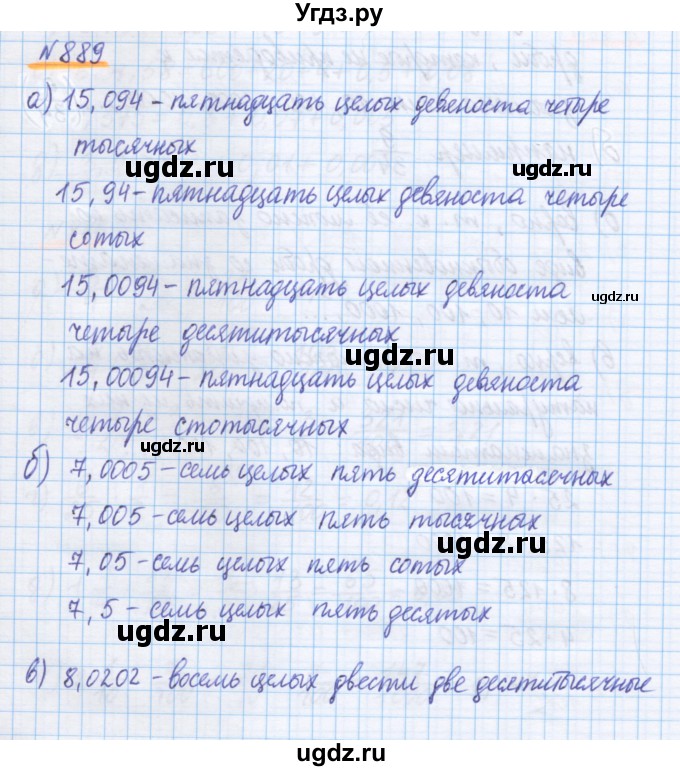 Угдз.ру
№889
а) 15,094 – пятнадцать целых девяноста четыре
тысячных
ugdz.ru
ugdz.ru
15,94 – пятнадцать целых девяноста четыре
сотых
15,0094 – пятнадцать целых девяноста
ugdz.ru
четыре десятитысячных
ugdz.ru
15,00094 – пятнадцать целых девяноста
четыре стотысячных
ugdz.ru
б) 7,0005 – семь целых пять десятитысечных
7,005 – семь целых пять тысячных
ugdz.ru
7,05 – семь целых пять сотых
7,5 – семь целых пять десятых
ugdz.ru
в) 8,0202 – восемь целых двести две десятитысячные
ugdz.ru